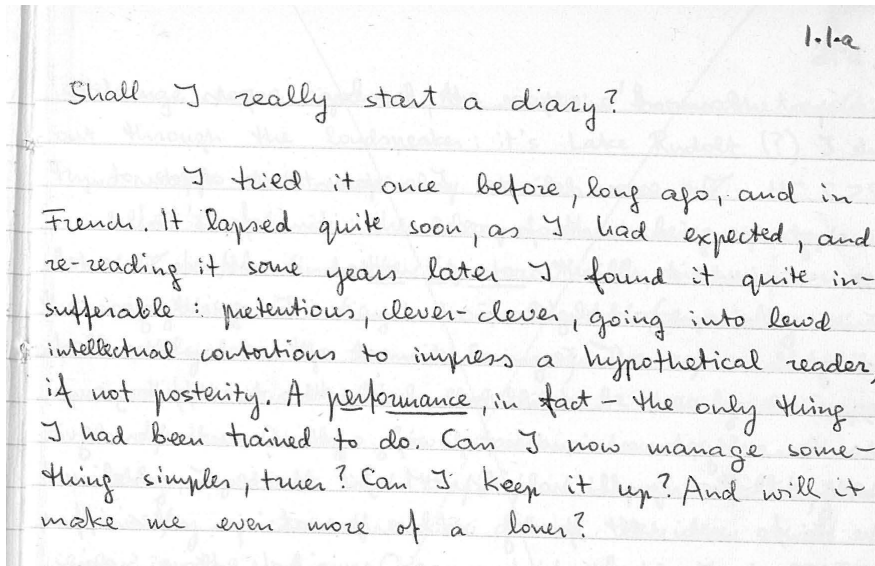 1.1.a
Shall I really start a diary?
I tried it once before, long ago, and in
French. It lapsed quite soon, as I had expected, and
re-reading it some years later I found it quite in-
sufferable : pretentious, clever-clever, going into lewd
intellectual contortions to impress a hypothetical reader,
if not posterity. A performance, in fact – the only thing
I had been trained to do. Can I now manage some-
thing simpler, truer? Can I keep it up? And will it
make me even more of a loner?